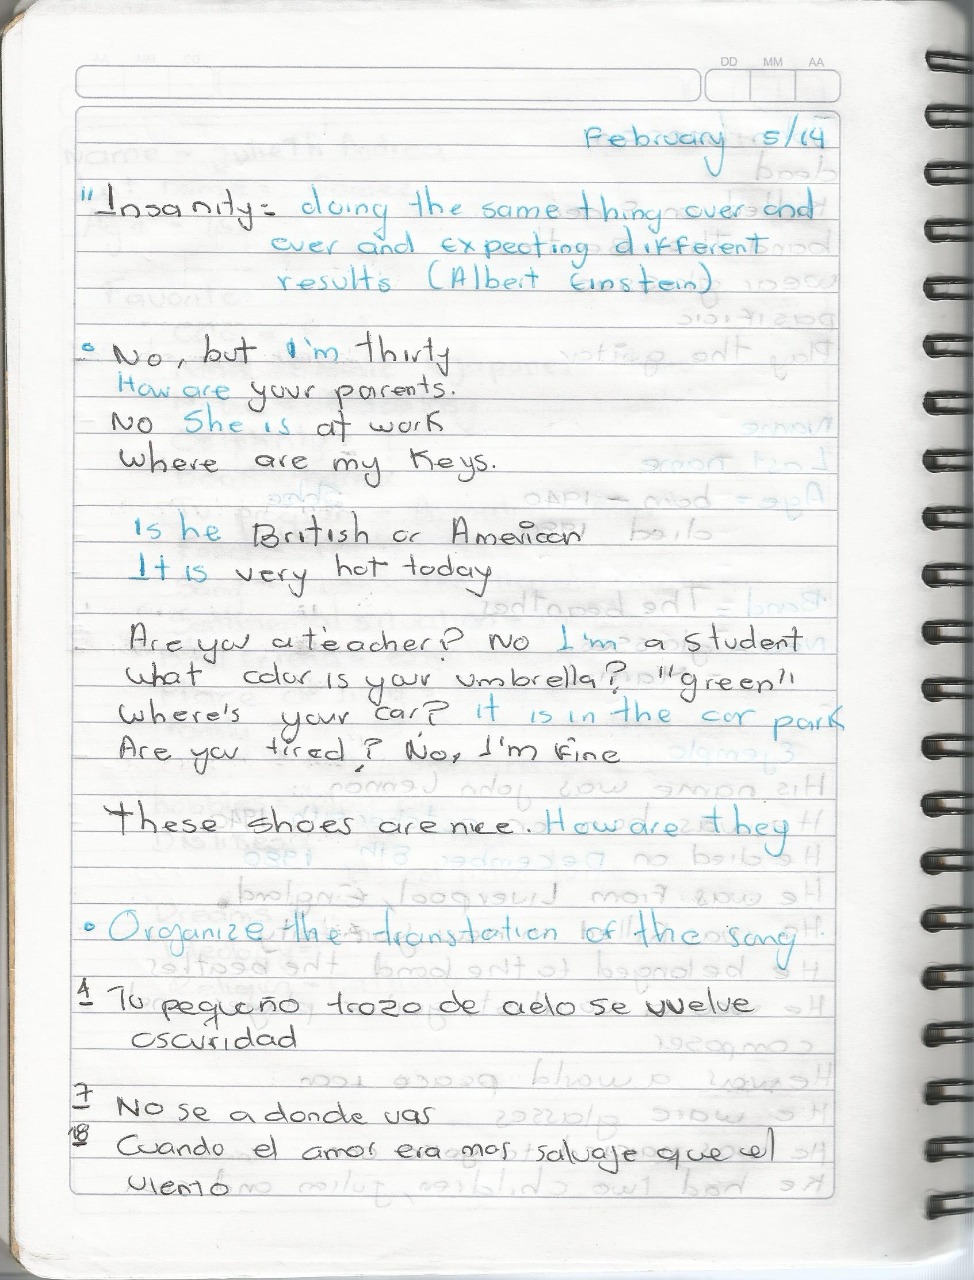 DD MM AA
February 5/14
"Insanity= doing the same thing over and
over and expecting different
results (Albert Einstein)
• No, but I'm thirty
How are your parents.
No She is at work
Where are my keys.
Is he British or American
It is very hot today
Are you a teacher? No I'm a student
what color is your umbrella? "green"
Where's your car? it is in the car park
Are you tired? No, I'm fine
These shoes are nice. How are they
• Organize the transtation of the song
4 Tu pequeño trozo de cielo se vuelve
oscuridad
7 No se a donde vas
18 Cuando el amor era mas salvaje que el
viento